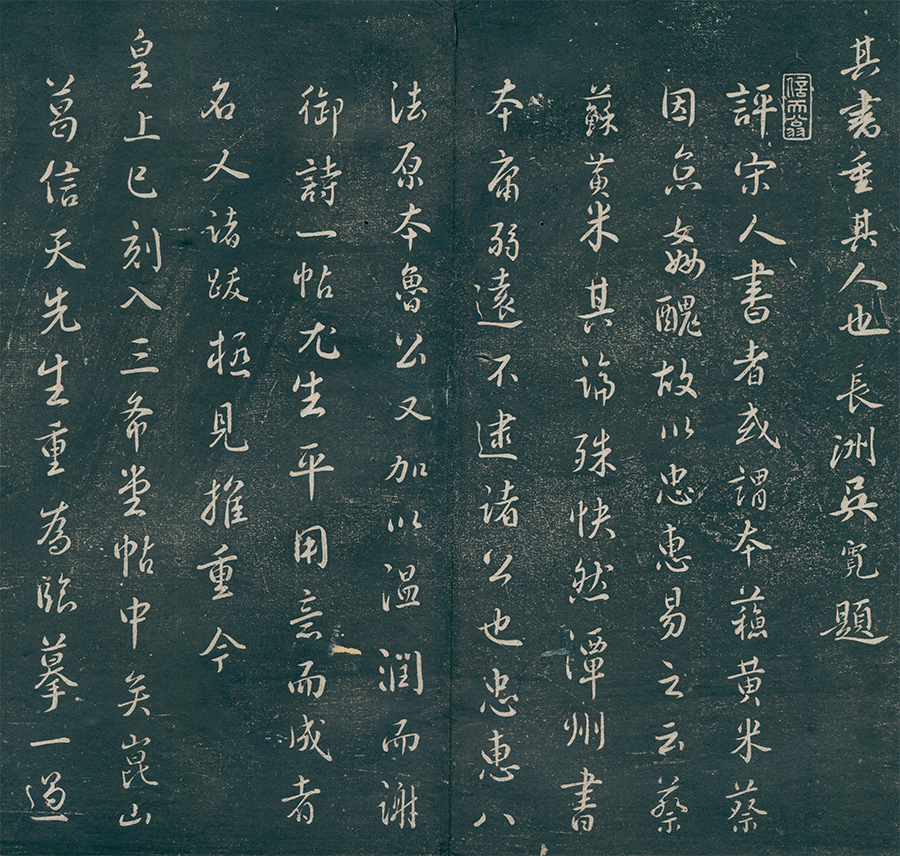 其書重其人也長洲吳寬題
信天翁
評宋人書者或謂本蘓黄米蔡
因京姦醜故以忠惠易之云蔡
蘇黄米其論殊快然潭州書
本庸弱遠不逮諸公也忠惠八
法原本魯公又加以温潤而謝
御詩一帖尤生平用意而成者
名人諸跋極見推重今
皇上已刻入三希堂帖中矣崑山
葛信天先生重為臨摹一過